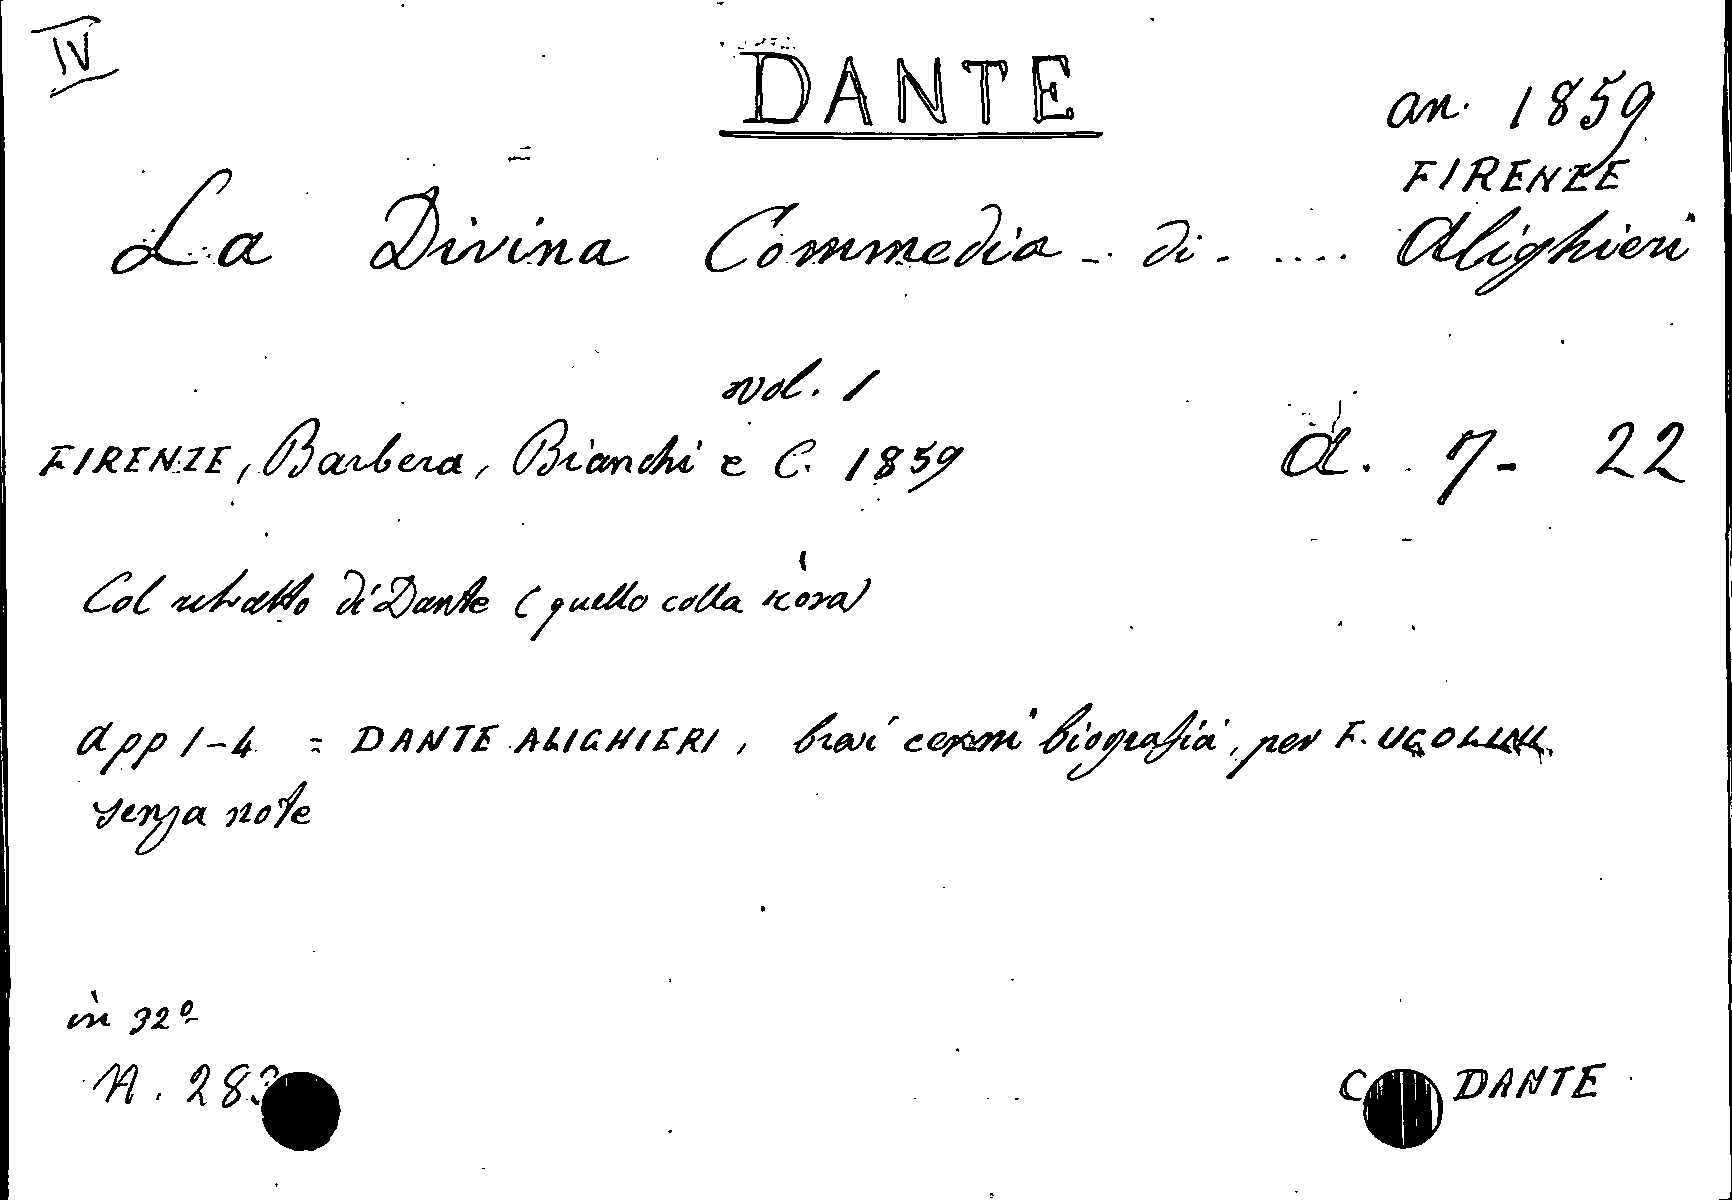 IV
DANTE
an. 1859
FIRENZE
La Divina Commedia - di - .... Alighieri
vol. 1
FIRENZE, Barbera, Bianchi e C. 1859
A. 7- 22
Col ritratto di Dante (quello colla
App 1-4 = DANTE ALIGHIERI, brevi cenni biografici, per F. UGOLINI.
senza note
in 32º
N. 283
C DANTE